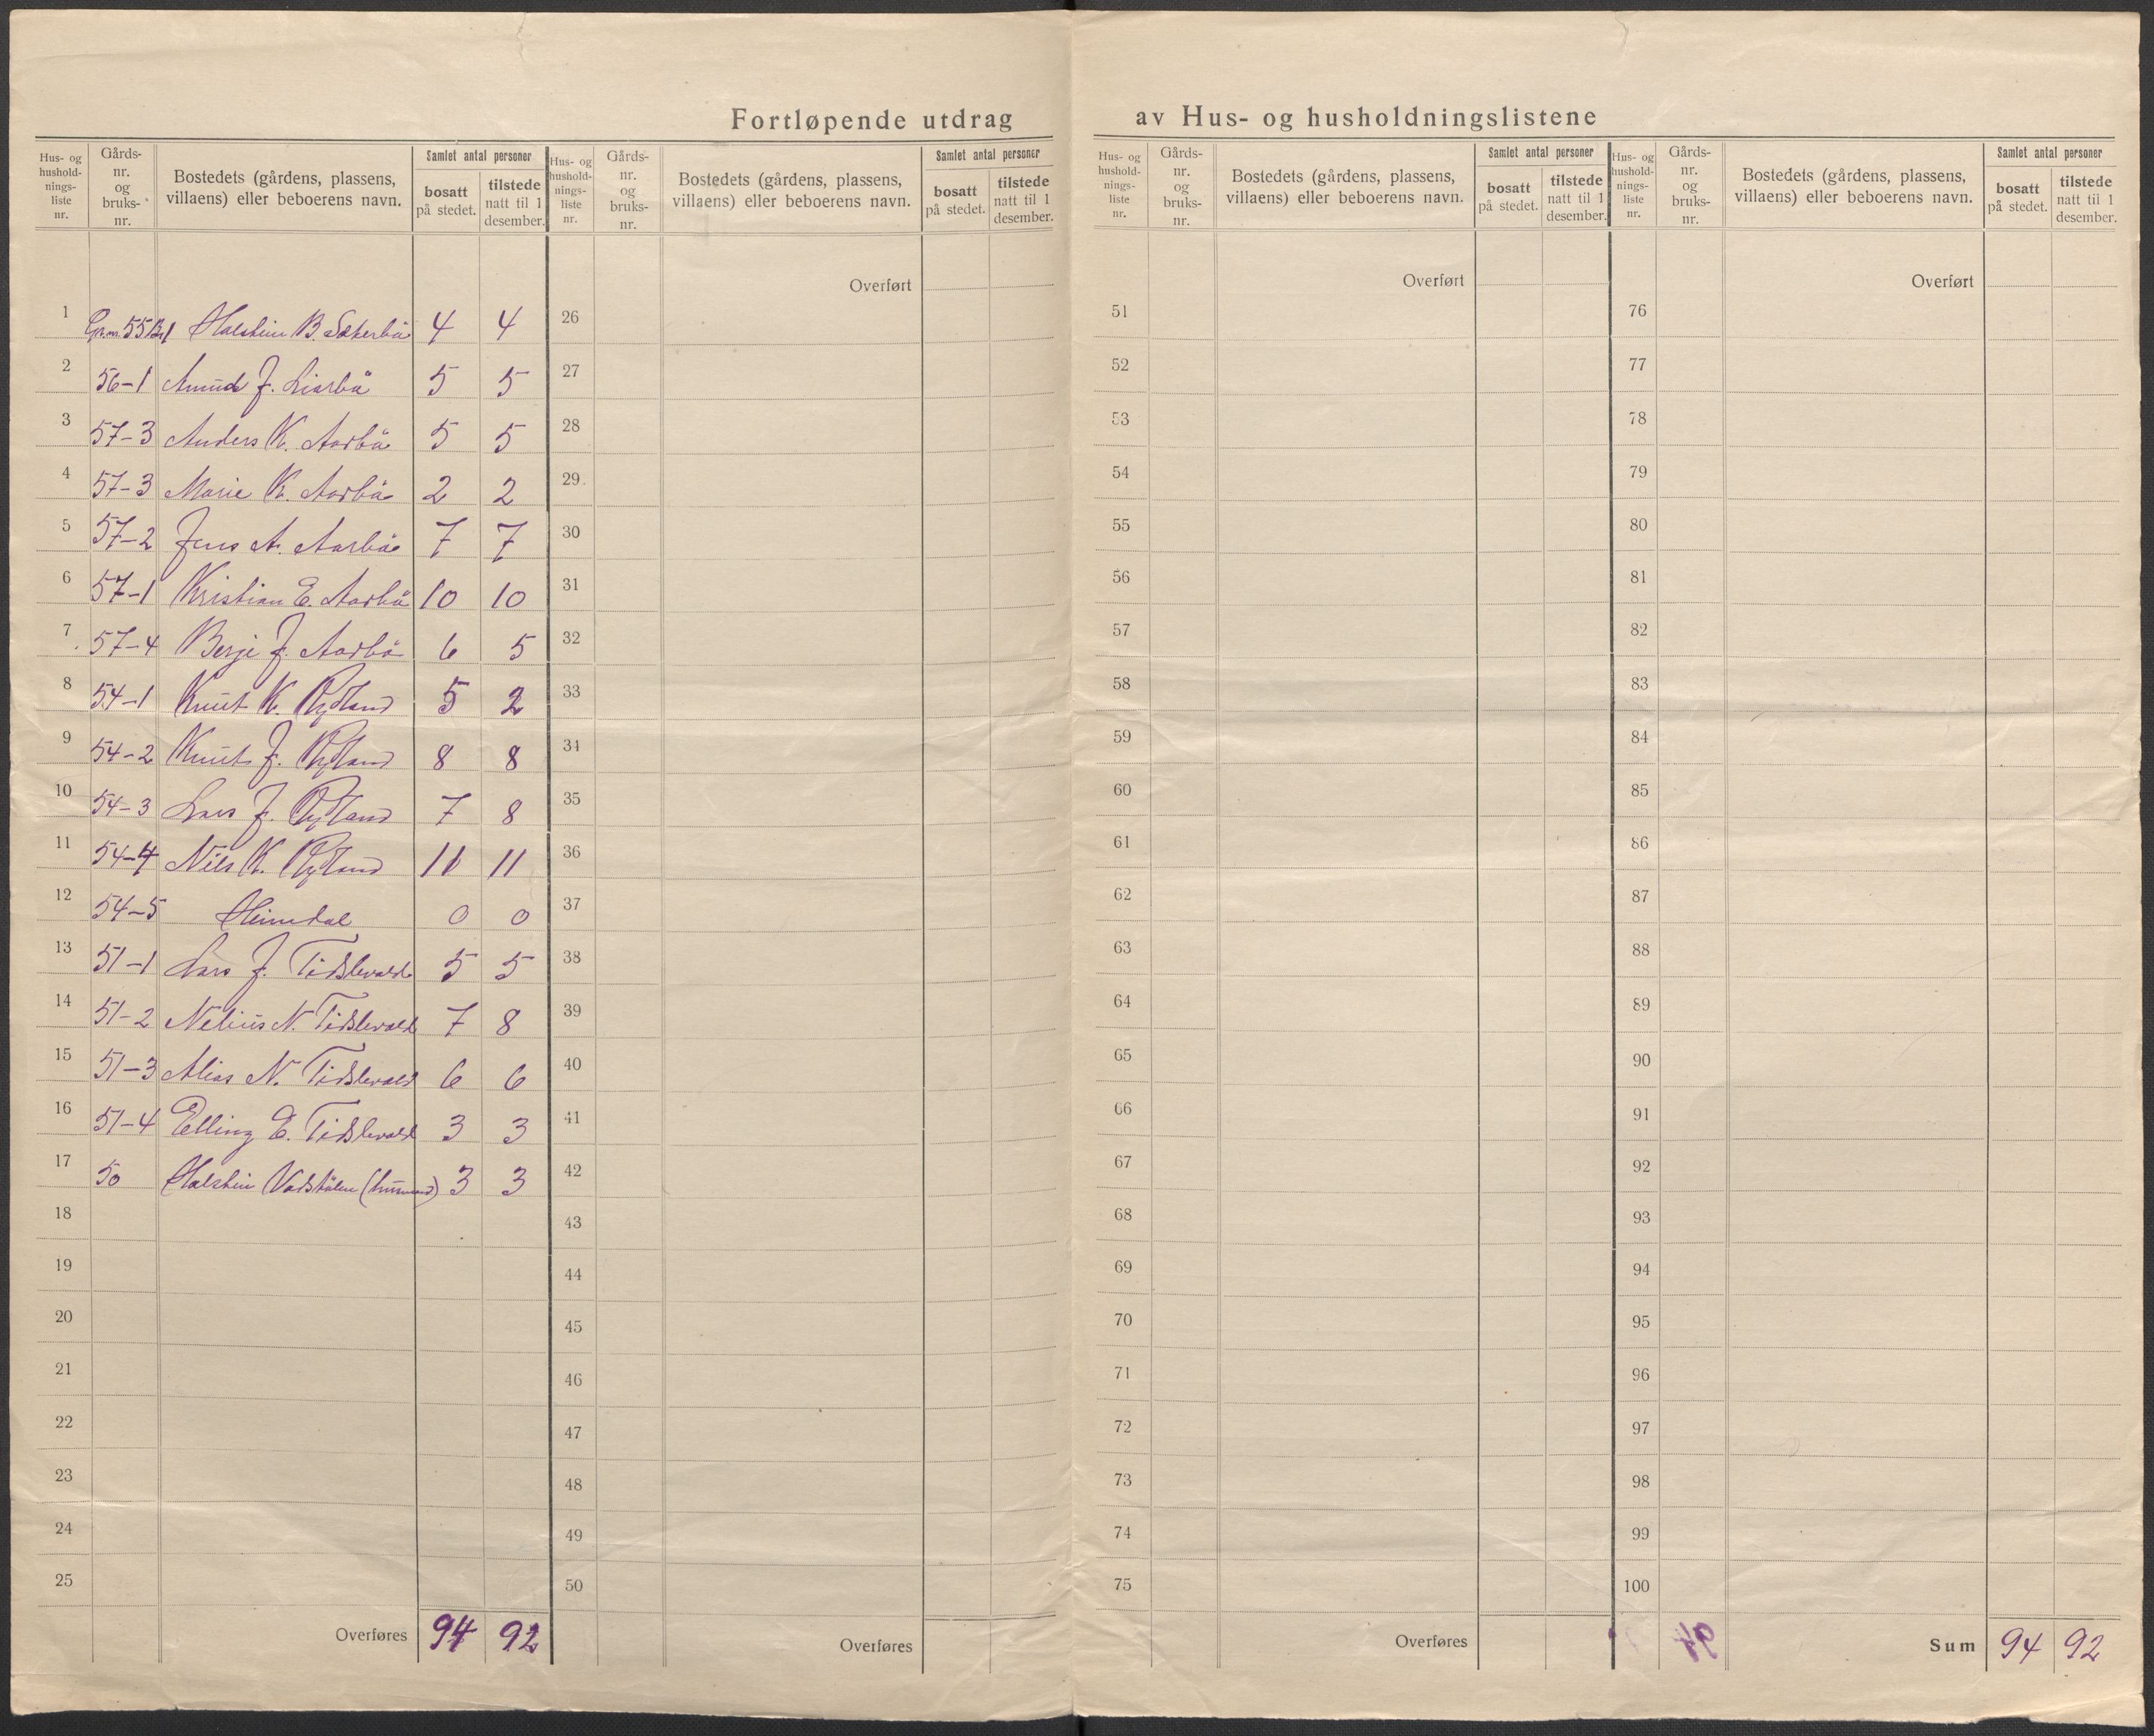 Fortløpende utdrag av Hus- og husholdningslistene
Hus- og hushold- nings- liste nr.
Gårds- nr. og bruks- nr.
Bostedets (gårdens, plassens, villaens) eller beboerens navn.
Samlet antal personer
bosatt på stedet.
tilstede natt til 1 desember.
Hus- og hushold- nings- liste nr.
Gårds- nr. og bruks- nr.
Bostedets (gårdens, plassens, villaens) eller beboerens navn.
Samlet antal personer
bosatt på stedet.
tilstede natt til 1 desember.
Hus- og hushold- nings- liste nr.
Gårds- nr. og bruks- nr.
Bostedets (gårdens, plassens, villaens) eller beboerens navn.
Samlet antal personer
bosatt på stedet.
tilstede natt til 1 desember.
Hus- og hushold- nings- liste nr.
Gårds- nr. og bruks- nr.
Bostedets (gårdens, plassens, villaens) eller beboerens navn.
Samlet antal personer
bosatt på stedet.
tilstede natt til 1 desember.
1 55 B. 4 4
2 56-1 Amund J. Liarbø 5 5
3 57-3 Anders K. Aarbø 5 5
4 57-3 Marie K. Aarbø 2 2
5 57-2 Jens A. Aarbø 7 7
6 57-1 Kristian E. Aarbø 10 10
7 57-4 Berje J. Aarbø 6 5
8 54-1 Knut K. Rylland 5 2
9 54-2 Knut J. Rylland 8 8
10 54-3 Lars J. Rylland 7 8
11 54-4 Nils K. Rylland 11 11
12 54-5 Heimdal 0 0
13 51-1 Lars J. Tidslevold 5 5
14 51-2 Nelius N. Tidslevold 7 8
15 51-3 Alias N. Tidslevold 6 6
16 51-4 Elling E. Tidslevold 3 3
17 50 Halstein 3 3
18
19
20
21
22
23
24
25
Overføres 94 92
Overført
26
27
28
29
30
31
32
33
34
35
36
37
38
39
40
41
42
43
44
45
46
47
48
49
50
Overføres
Overført
51
52
53
54
55
56
57
58
59
60
61
62
63
64
65
66
67
68
69
70
71
72
73
74
75
Overføres
Overført
76
77
78
79
80
81
82
83
84
85
86
87
88
89
90
91
92
93
94
95
96
97
98
99
100
Sum 94 92